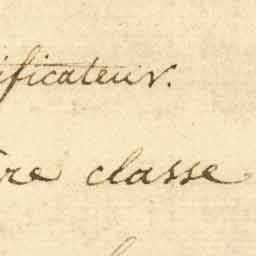 ificateur.
re classe